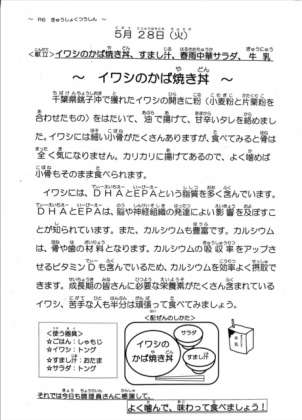 ～ R6 きゅうしょくつうしん ～
5月28日(火)
<献立>イワシのかば焼き丼、すまし汁、春雨中華サラダ、牛乳
～ イワシのかば焼き丼 ～
千葉県銚子沖で獲れたイワシの開きに粉(小麦粉と片栗粉を
合わせたもの)をはたいて、油で揚げて、甘辛いタレを絡めまし
た。イワシには細い小骨がたくさんありますが、食べてみると骨は
全く気になりません。カリカリに揚げてあるので、よく噛めば
小骨もそのまま食べられます。
イワシには、DHAとEPAという脂質を多く含んでいます。
DHAとEPAは、脳や神経組織の発達によい影響を及ぼすこ
とが知られています。また、カルシウムも豊富です。カルシウム
は、骨や歯の材料となります。カルシウムの吸収率をアップさ
せるビタミンDも含んでいるため、カルシウムを効率よく摂取で
きます。成長期の皆さんに必要な栄養素がたくさん含まれている
イワシ、苦手な人も半分は頑張って食べてみましょう。
<使う食具>
☆ごはん:しゃもじ
☆イワシ:トング
☆すまし汁:おたま
☆サラダ:トング
<配ぜんのしかた>
イワシの
かば焼き丼
サラダ
すまし汁
それでは今日も調理員さんに感謝して、
よく噛んで、味わって食べましょう!